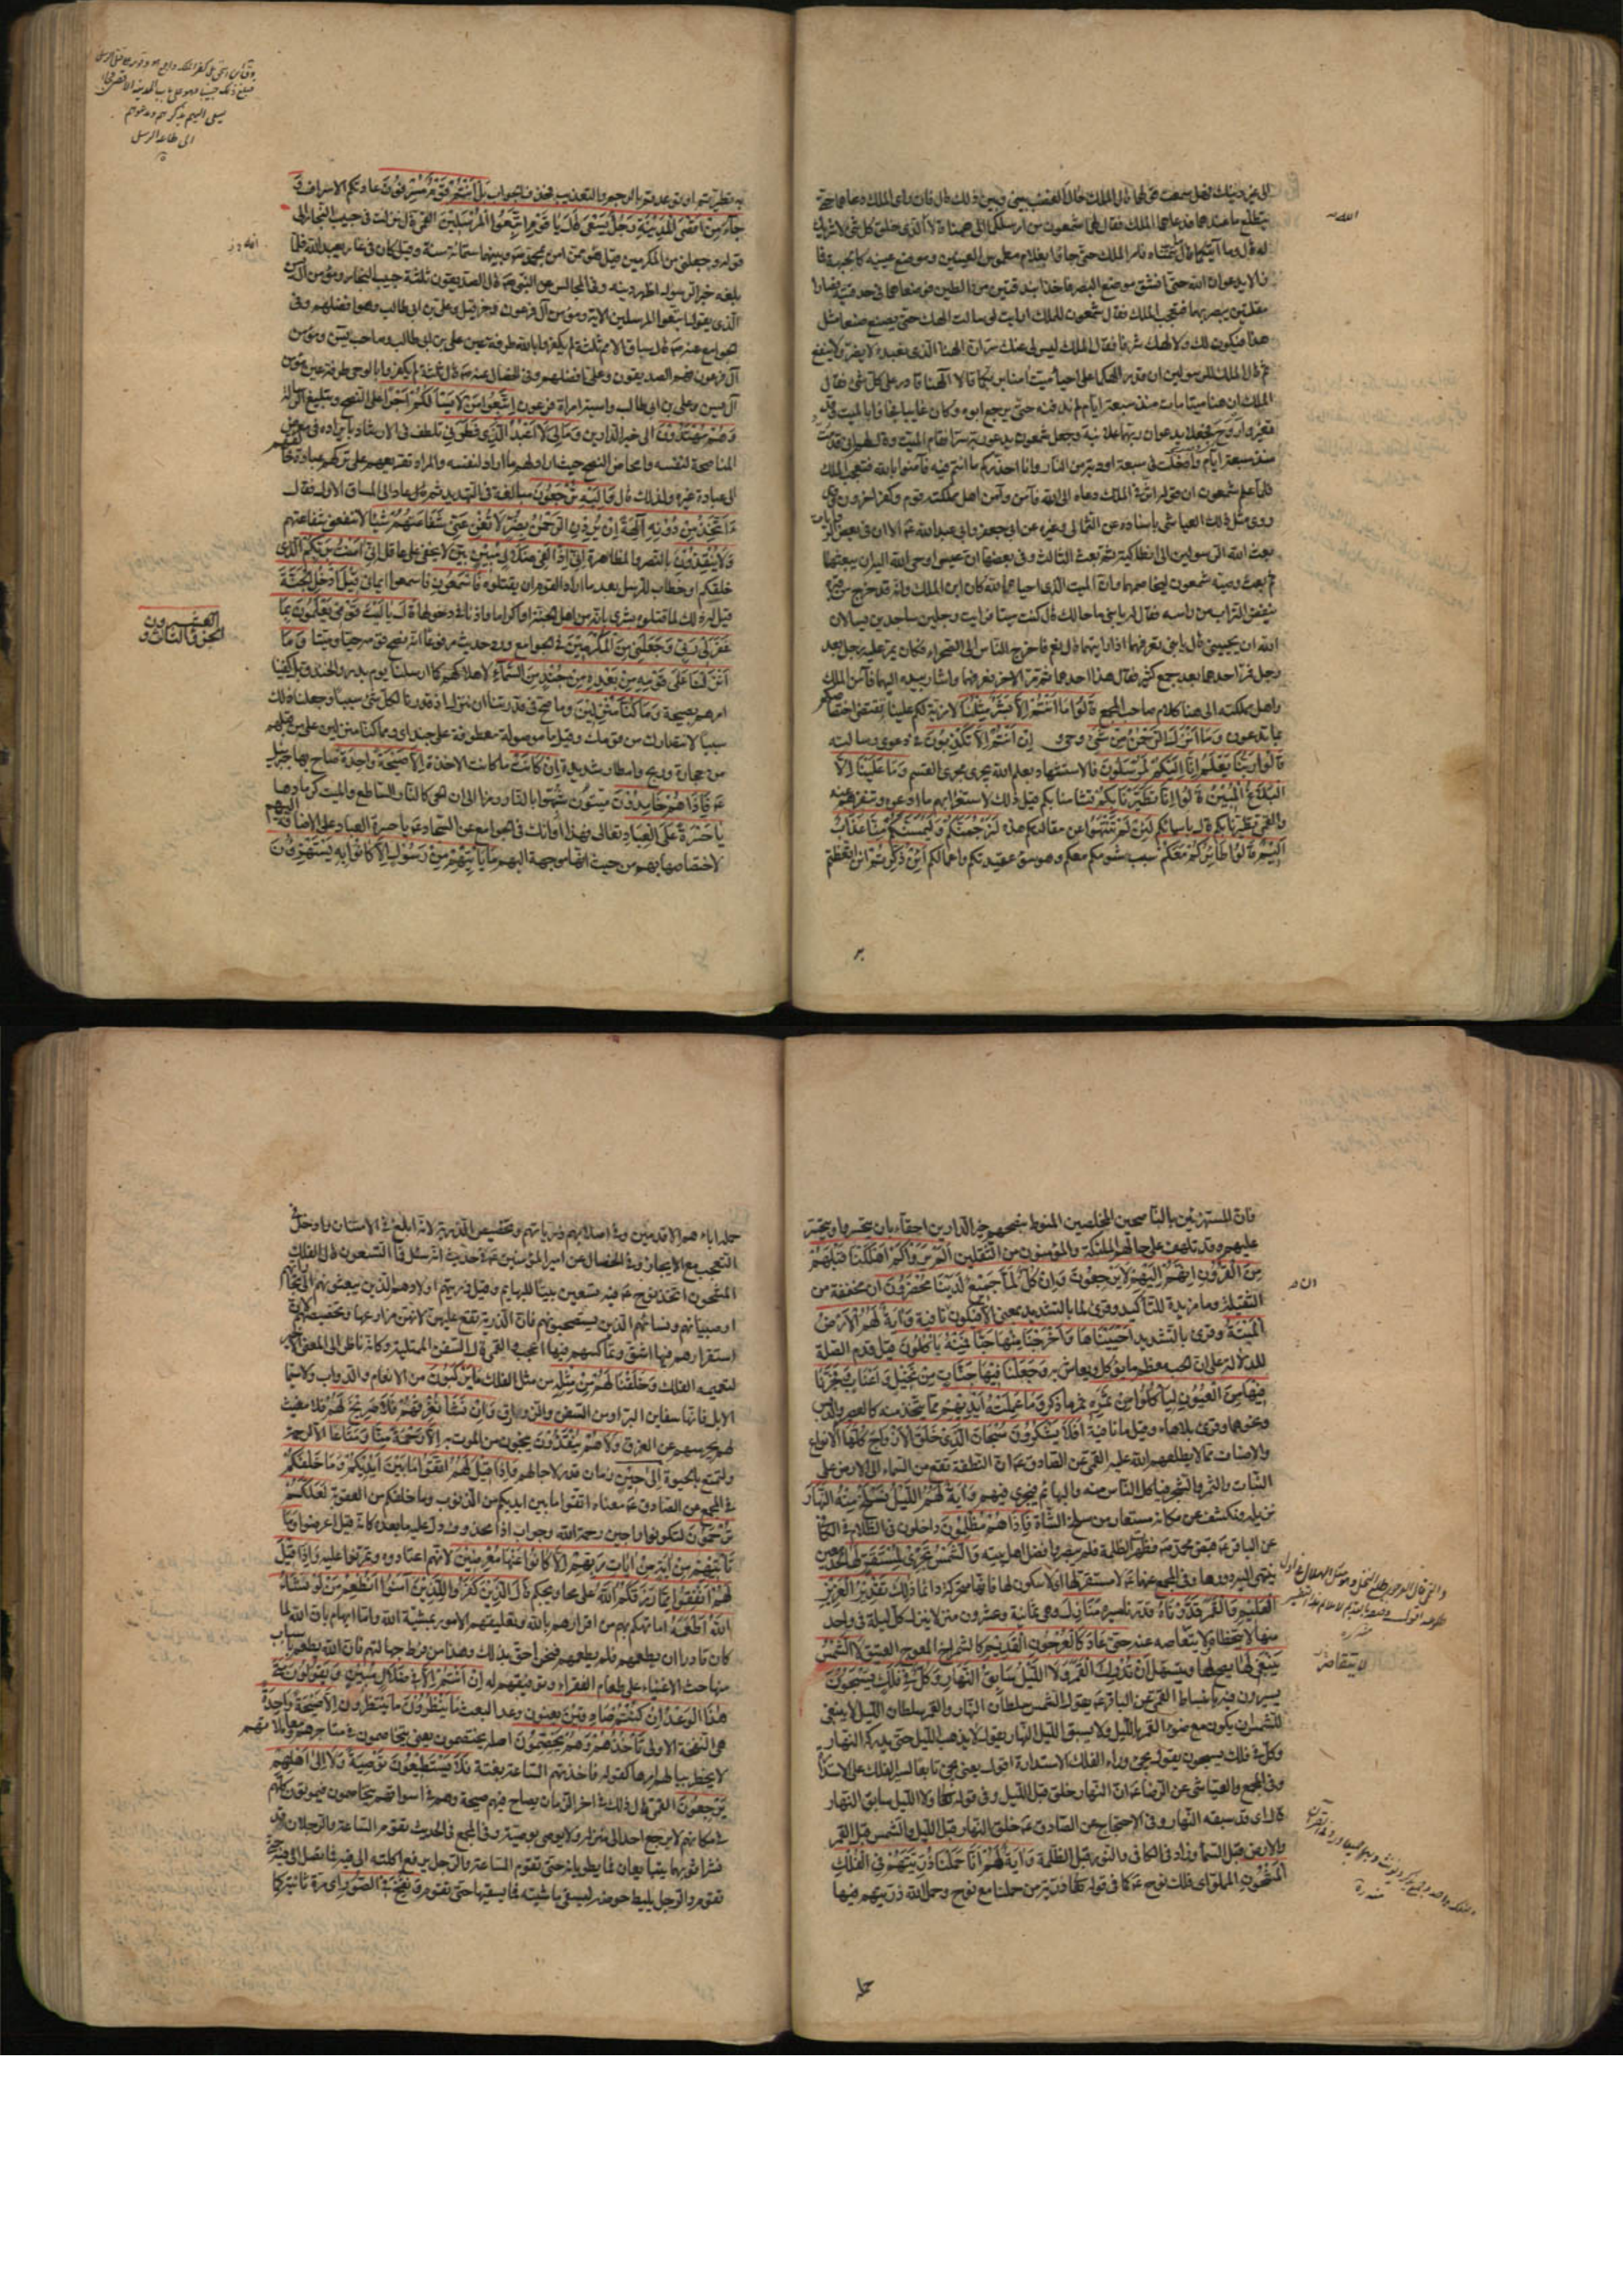 الى غير دينك فهل سمعت
فما لايد عوان الله حتى انشق موضع البصر فاخذا بندقتين من الطين فوضعاهما في حدقتيه فصارا
مقلتين يبصر بهما فتعجب الملك فقال شمعون للملك ارايت لو سالت الهك حتى يصنع صنعا مثل
هذا فيكون لك ولالهك شرفا فقال الملك ليس لى عنك سر ان الهنا الذى نعبده لا يضر ولا ينفع
ثم قال الملك للرسولين ان قدر الهكما على احياء ميت امنا به وبكما قالا الهنا قادر على كل شئ فقال
الملك ان هنا ميتا مات منذ سبعة ايام لم ندفنه حتى يرجع ابوه وكان غايبا فجاؤا بالميت وقد
تغير واروح فجعلا يدعوان ربهما علانية وجعل شمعون يدعو ربه سرا فقام الميت وقال لهم انى قد مت
منذ سبعة ايام وادخلت في سبعة اودية من النار وانا احذركم ما انتم فيه فآمنوا بالله فتعجب الملك
فلما علم شمعون ان قوله اثر في الملك دعاه الى الله فآمن وآمن من اهل مملكته قوم وكفر آخرون
بعث الله الرسولين الى انطاكية ثم بعث الثالث وفى بعضها ان عيسى اوحى الله اليه ان يبعثهما
ثم بعث وصيه شمعون ليخلصهما وان الميت الذى احياه الله كان ابن الملك وانه قد خرج من قبره
ينفض التراب من راسه فقال له يا بنى ما حالك قال كنت ميتا فرايت رجلين ساجدين يسالان
الله ان يحيينى قال يا بنى تعرفهما اذا رايتهما قال نعم فاخرج الناس الى الصحراء فكان يمر عليه رجل بعد
رجل فمر احدهما بعد جمع كثير فقال هذا احدهما ثم مر الآخر فعرفهما واشار بيده اليهما فآمن الملك
واهل مملكته الى هنا كلام صاحب المجمع قالوا ما انتم الا بشر مثلنا لا مزية لكم علينا تقتضى اختصاصكم
بما تدعون وما انزل الرحمن من شئ وحى ان انتم الا تكذبون في دعوى رسالته
قالوا ربنا يعلم انا اليكم لمرسلون فالاستشهاد بعلم الله يجرى مجرى القسم وما علينا الا
البلاغ المبين قالوا انا تطيرنا بكم تشأمنا بكم قيل ذلك لاستغرابهم ما ادعوه وتنفرهم عنه
والقمى تطيرنا بكم قال باسمائكم لئن لم تنتهوا عن مقالتكم هذه لنرجمنكم وليمسنكم منا عذاب
اليم قالوا طائركم معكم سبب شومكم معكم وهو سوء عقيدتكم واعمالكم ائن ذكرتم ائن وعظتم
به تطيرتم او توعدتم بالرجم والتعذيب فحذف الجواب بل انتم قوم مسرفون عادتكم الاسراف و
جاء من اقصى المدينة رجل يسعى قال يا قوم اتبعوا المرسلين القمى قال نزلت في حبيب النجار الى
قوله وجعلنى من المكرمين
بلغه خبر الرسول اظهر دينه وفى المجالس عن النبى ص قال الصديقون ثلثة حبيب النجار مؤمن آل يس
الذى يقول اتبعوا المرسلين الآية ومؤمن آل فرعون وحزقيل وعلى بن ابى طالب وهو افضلهم وفى
الجوامع عنه ص قال سباق الامم ثلثة لم يكفروا بالله طرفة عين على بن ابى طالب وصاحب يس ومؤمن
آل فرعون فهم الصديقون وعلى افضلهم وفى الخصال عنه ص قال ثلثة لم يكفروا بالوحى طرفة عين مؤمن
آل يس وعلى بن ابى طالب وآسية امراة فرعون اتبعوا من لا يسالكم اجرا على النصح وتبليغ الرسالة
وهم مهتدون الى خير الدارين وما لى لا اعبد الذى فطرنى تلطف في الارشاد بايراده في معرض
المناصحة لنفسه وامحاض النصح حيث اراد لهم ما اراد لنفسه والمراد تقريعهم على تركهم عبادة خالقهم
الى عبادة غيره ولذلك قال واليه ترجعون مبالغة في التهديد ثم عاد الى المساق الاول فقال
ءاتخذ من دونه آلهة ان يردن الرحمن بضر لا تغن عنى شفاعتهم شيئا لا تنفعنى شفاعتهم
ولا ينقذون بالنصر والمظاهرة انى اذا لفى ضلال مبين بين لا يخفى على عاقل انى آمنت بربكم الذى
خلقكم او خطاب للرسل بعد ما اراد القوم ان يقتلوه فاسمعون فاسمعوا ايمانى قيل ادخل الجنة
قيل له ذلك لما قتلوه بشرى بانه من اهل الجنة او اكراما واذنا في دخولها قال يا ليت قومى يعلمون بما
غفر لى ربى وجعلنى من المكرمين في الجوامع ورد في حديث مرفوعا انه نصح قومه حيا وميتا وما
انزلنا على قومه من بعده من جند من السماء لاهلاكهم كما ارسلنا يوم بدر والخندق بل كفينا
امرهم بصيحة وما كنا منزلين وما صح في قدرتنا ان ننزل اذ قدرنا لكل شئ سببا وجعلنا ذلك
سببا لانتصارك من قومك وقيل ما موصولة معطوفة على جند اى ومما كنا منزلين على من قبلهم
من حجارة وريح وامطار شديدة ان كانت ما كانت الاخذة الا صيحة واحدة صاح بها جبرئيل
فاذا هم خامدون ميتون شبهوا بالنار رمزا الى ان الحى كالنار الساطع والميت كرمادها
يا حسرة على العباد تعالى فهذا اوانك
لاختصاصها بهم من حيث انها موجهة اليهم ما ياتيهم من رسول الا كانوا به يستهزؤن
الجزو الثالث و
العشرون
فان المستهزئين بالناصحين المخلصين المنوط بنصحهم خير الدارين احقاء بان يتحسروا ويتحسر
عليهم وقد تلهف على حالهم الملئكة والمؤمنون من الثقلين الم يروا كم اهلكنا قبلهم
من القرون انهم اليهم لا يرجعون وان كل لما جميع لدينا محضرون ان مخففة من
الثقيلة وما مزيدة للتاكيد وقرئ لما بالتشديد بمعنى الا فيكون ان نافية وآية لهم الارض
الميتة وقرئ بالتشديد احييناها واخرجنا منها حبا فمنه ياكلون قيل قدم الصلة
للدلالة على ان الحب معظم ما يؤكل ويعاش به وجعلنا فيها جنات من نخيل واعناب وفجرنا
فيها من العيون لياكلوا من ثمره ثمر ما ذكر وما عملته ايديهم مما يتخذ منه كالعصير والدبس
ونحوهما وقرئ بلا هاء وقيل ما نافية افلا يشكرون سبحان الذى خلق الازواج كلها الانواع
والاصناف مما لا يطلعهم الله عليه القمى عن الصادق ع ان النطفة تقع من السماء الى الارض على
النبات والثمر والشجر فياكل الناس منه والبهائم فيجرى فيهم وآية لهم الليل نسلخ منه النهار
نزيله ونكشف عن مكانه مستعار من سلخ الشاة فاذا هم مظلمون داخلون في الظلام في الكافى
عن الباقر ع قبض محمد ص فظهر الظلمة فلم يبصروا فضل اهل بيته والشمس تجرى لمستقر لها
العليم والقمر قدرناه قدرنا مسيره منازل وهى ثمانية وعشرون منزلا ينزل كل ليلة في واحد
منها لا يتخطاه ولا يتقاصر عنه حتى عاد كالعرجون القديم كالشمراخ المعوج العتيق لا الشمس
ينبغى لها يصح لها ويتسهل ان تدرك القمر ولا الليل سابق النهار وكل في فلك يسبحون
يسيرون فيه بانبساط القمى عن الباقر ع يقول الشمس سلطان النهار والقمر سلطان الليل لا ينبغى
للشمس ان يكون مع ضوء القمر بالليل ولا يسبق الليل النهار يقول لا يذهب الليل حتى يدركه النهار
وكل في فلك يسبحون يقول يجئ وراء الفلك الاستدارة اقول يعنى يجئ تابعا لسير الفلك على الاستدارة
وفى المجمع والعياشى عن الرضا ع ان النهار خلق قبل الليل وفى قوله تعالى ولا الليل سابق النهار
قال اى قد سبقه النهار وفى الاحتجاج عن الصادق ع خلق النهار قبل الليل والشمس قبل القمر
والارض قبل السماء وزاد في الكافى والنور قبل الظلمة وآية لهم انا حملنا ذريتهم في الفلك
المشحون المملو اى فلك نوح ع كما في قوله تعالى ذرية من حملنا مع نوح وحمل الله ذريتهم فيها
لا يتقاصر
حمل آباءهم الاقدمين وفى اصلابهم ذرياتهم وتخصيص الذرية لانه ابلغ في الامتنان وادخل في
التعجب مع الايجاز وفى الخصال عن امير المؤمنين ع في حديث
المشحون اتخذ نوح ع فيه تسعين بيتا للبهائم وقيل ذريتهم اولادهم الذين يبعثونهم الى تجاراتهم
او صبيانهم ونساءهم الذين يستصحبونهم فان الذرية تقع عليهن لانهن مزارعها وتخصيصهم لان
استقرارهم فيها اشق وتماسكهم فيها اعجب والقمى قال السفن الممتلية وكانه ناظر الى المعنى الاخير
لتعميمه الفلك وخلقنا لهم من مثله من مثل الفلك ما يركبون من الانعام والدواب ولا سيما
الابل فانها سفاين البر او من السفن والزوارق وان نشا نغرقهم فلا صريخ لهم فلا مغيث
لهم يحرسهم عن الغرق ولا هم ينقذون ينجون من الموت به الا رحمة منا ومتاعا الا لرحمة
ولتمتع بالحيوة الى حين زمان قدر لآجالهم واذا قيل لهم اتقوا ما بين ايديكم وما خلفكم
في المجمع عن الصادق ع معناه اتقوا ما بين ايديكم من الذنوب وما خلفكم من العقوبة لعلكم
ترحمون لتكونوا راجين رحمة الله وجواب اذا محذوف دل عليه ما بعده كانه قيل اعرضوا وما
تاتيهم من آية من آيات ربهم الا كانوا عنها معرضين لانهم اعتادوه وتمرنوا عليه واذا قيل
لهم انفقوا مما رزقكم الله على محاويجكم قال الذين كفروا للذين آمنوا انطعم من لو يشاء
الله اطعمه اما تهكم بهم من اقرارهم بالله وتعليقهم الامور بمشية الله واما ايهام بان الله لما
كان قادرا ان يطعمهم فلم يطعمهم فنحن احق بذلك وهذا من فرط جهالتهم فان الله يطعم باسباب
منها حث الاغنياء على اطعام الفقراء وتوفيقهم له ان انتم الا في ضلال مبين ويقولون متى
هذا الوعد ان كنتم صادقين يعنون وعد البعث ما ينظرون ما ينتظرون الا صيحة واحدة
هى النفخة الاولى تاخذهم وهم يخصمون اصله يختصمون يعنى يتخاصمون في متاجرهم ومعاملاتهم
لا يخطر ببالهم امرها كقوله فاخذتهم الساعة بغتة فلا يستطيعون توصية ولا الى اهلهم
يرجعون القمى قال ذلك في آخر الزمان يصاح فيهم صيحة وهم في اسواقهم يتخاصمون فيموتون كلهم
في مكانهم لا يرجع احد الى منزله ولا يوصى بوصية وفى المجمع في الحديث تقوم الساعة والرجلان قد
نشرا ثوبهما يتبايعان فما يطويانه حتى تقوم الساعة والرجل يرفع اكلته الى فيه فما تصل الى فيه حتى
تقوم والرجل يليط حوضه ليسقى ماشيته فما يسقيها حتى تقوم ونفخ في الصور اى مرة ثانية كما